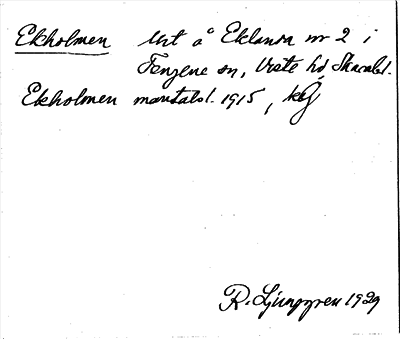 Ekholmen Urt å Eklanda nr 2 i
Fengene sn, Viste hd, Skarabl.
Ekholmen mantalsl. 1915, kbg
R. Ljunggren 1929